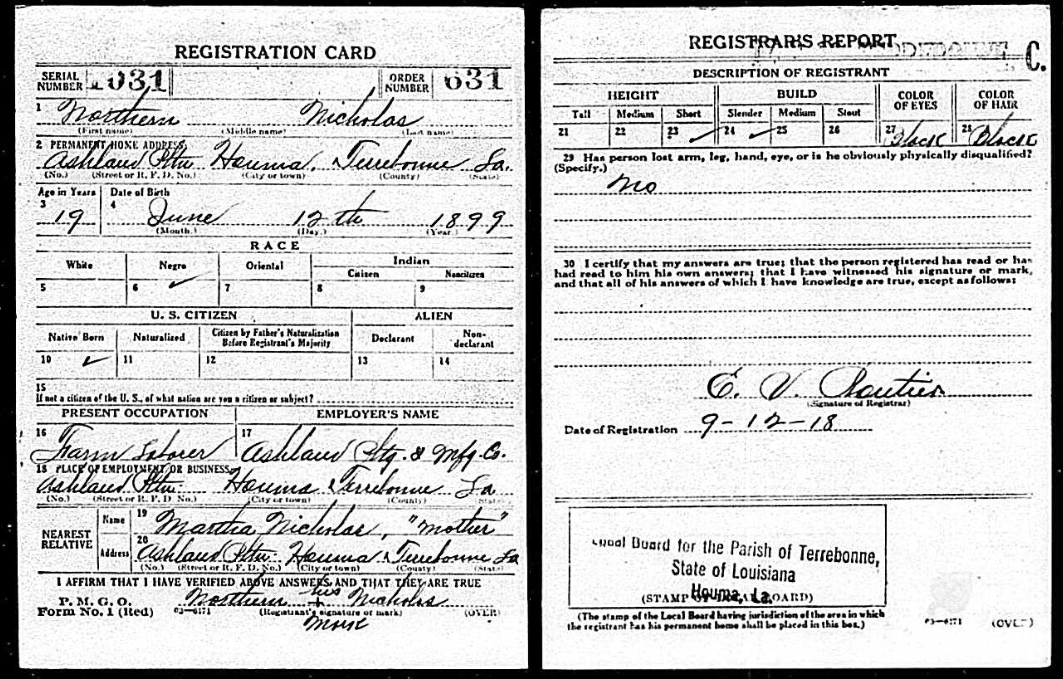 REGISTRATION CARD
SERIAL NUMBER 1031 ORDER NUMBER 631
1 Northern Nicholas
(First name) (Middle name) (Last name)
2 PERMANENT HOME ADDRESS
Ashland Pltn Houma, Terrebonne La.
(No.) (Street or R. F. D. No.) (City or town) (County) (State)
Age in Years Date of Birth
3 4
19 June 12th 1899
(Month.) (Day.) (Year.)
RACE
White Negro Oriental Indian
Citizen Noncitizen
5 6 ✓ 7 8 9
U. S. CITIZEN ALIEN
Native Born Naturalized Citizen by Father's Naturalization Before Registrant's Majority Declarant Non-declarant
10 ✓ 11 12 13 14
15
If not a citizen of the U. S., of what nation are you a citizen or subject?
PRESENT OCCUPATION EMPLOYER'S NAME
16 Farm Laborer 17 Ashland Pltg. & Mfg. Co.
18 PLACE OF EMPLOYMENT OR BUSINESS
Ashland Pltn Houma Terrebonne La
(No.) (Street or R. F. D. No.) (City or town) (County) (State)
NEAREST RELATIVE Name 19 Martha Nicholas, "Mother"
Address 20 Ashland Pltn Houma Terrebonne La
(No.) (Street or R. F. D. No.) (City or town) (County) (State)
I AFFIRM THAT I HAVE VERIFIED ABOVE ANSWERS AND THAT THEY ARE TRUE
P. M. G. O.
Form No. 1 (Red) 03-6171 Northern his + Nicholas
(Registrant's signature or mark) (OVER)
mark
REGISTRAR'S REPORT
C.
DESCRIPTION OF REGISTRANT
HEIGHT BUILD COLOR OF EYES COLOR OF HAIR
Tall Medium Short Slender Medium Stout
21 22 23 ✓ 24 ✓ 25 26 27 Black 28 Black
29 Has person lost arm, leg, hand, eye, or is he obviously physically disqualified?
(Specify.)
No
30 I certify that my answers are true; that the person registered has read or has
had read to him his own answers; that I have witnessed his signature or mark,
and that all of his answers of which I have knowledge are true, except as follows:
E. V.
(Signature of Registrar)
Date of Registration 9-12-18
Local Board for the Parish of Terrebonne,
State of Louisiana
Houma, La.
(STAMP OF LOCAL BOARD)
(The stamp of the Local Board having jurisdiction of the area in which
the registrant has his permanent home shall be placed in this box.)
03-6171 (OVER)